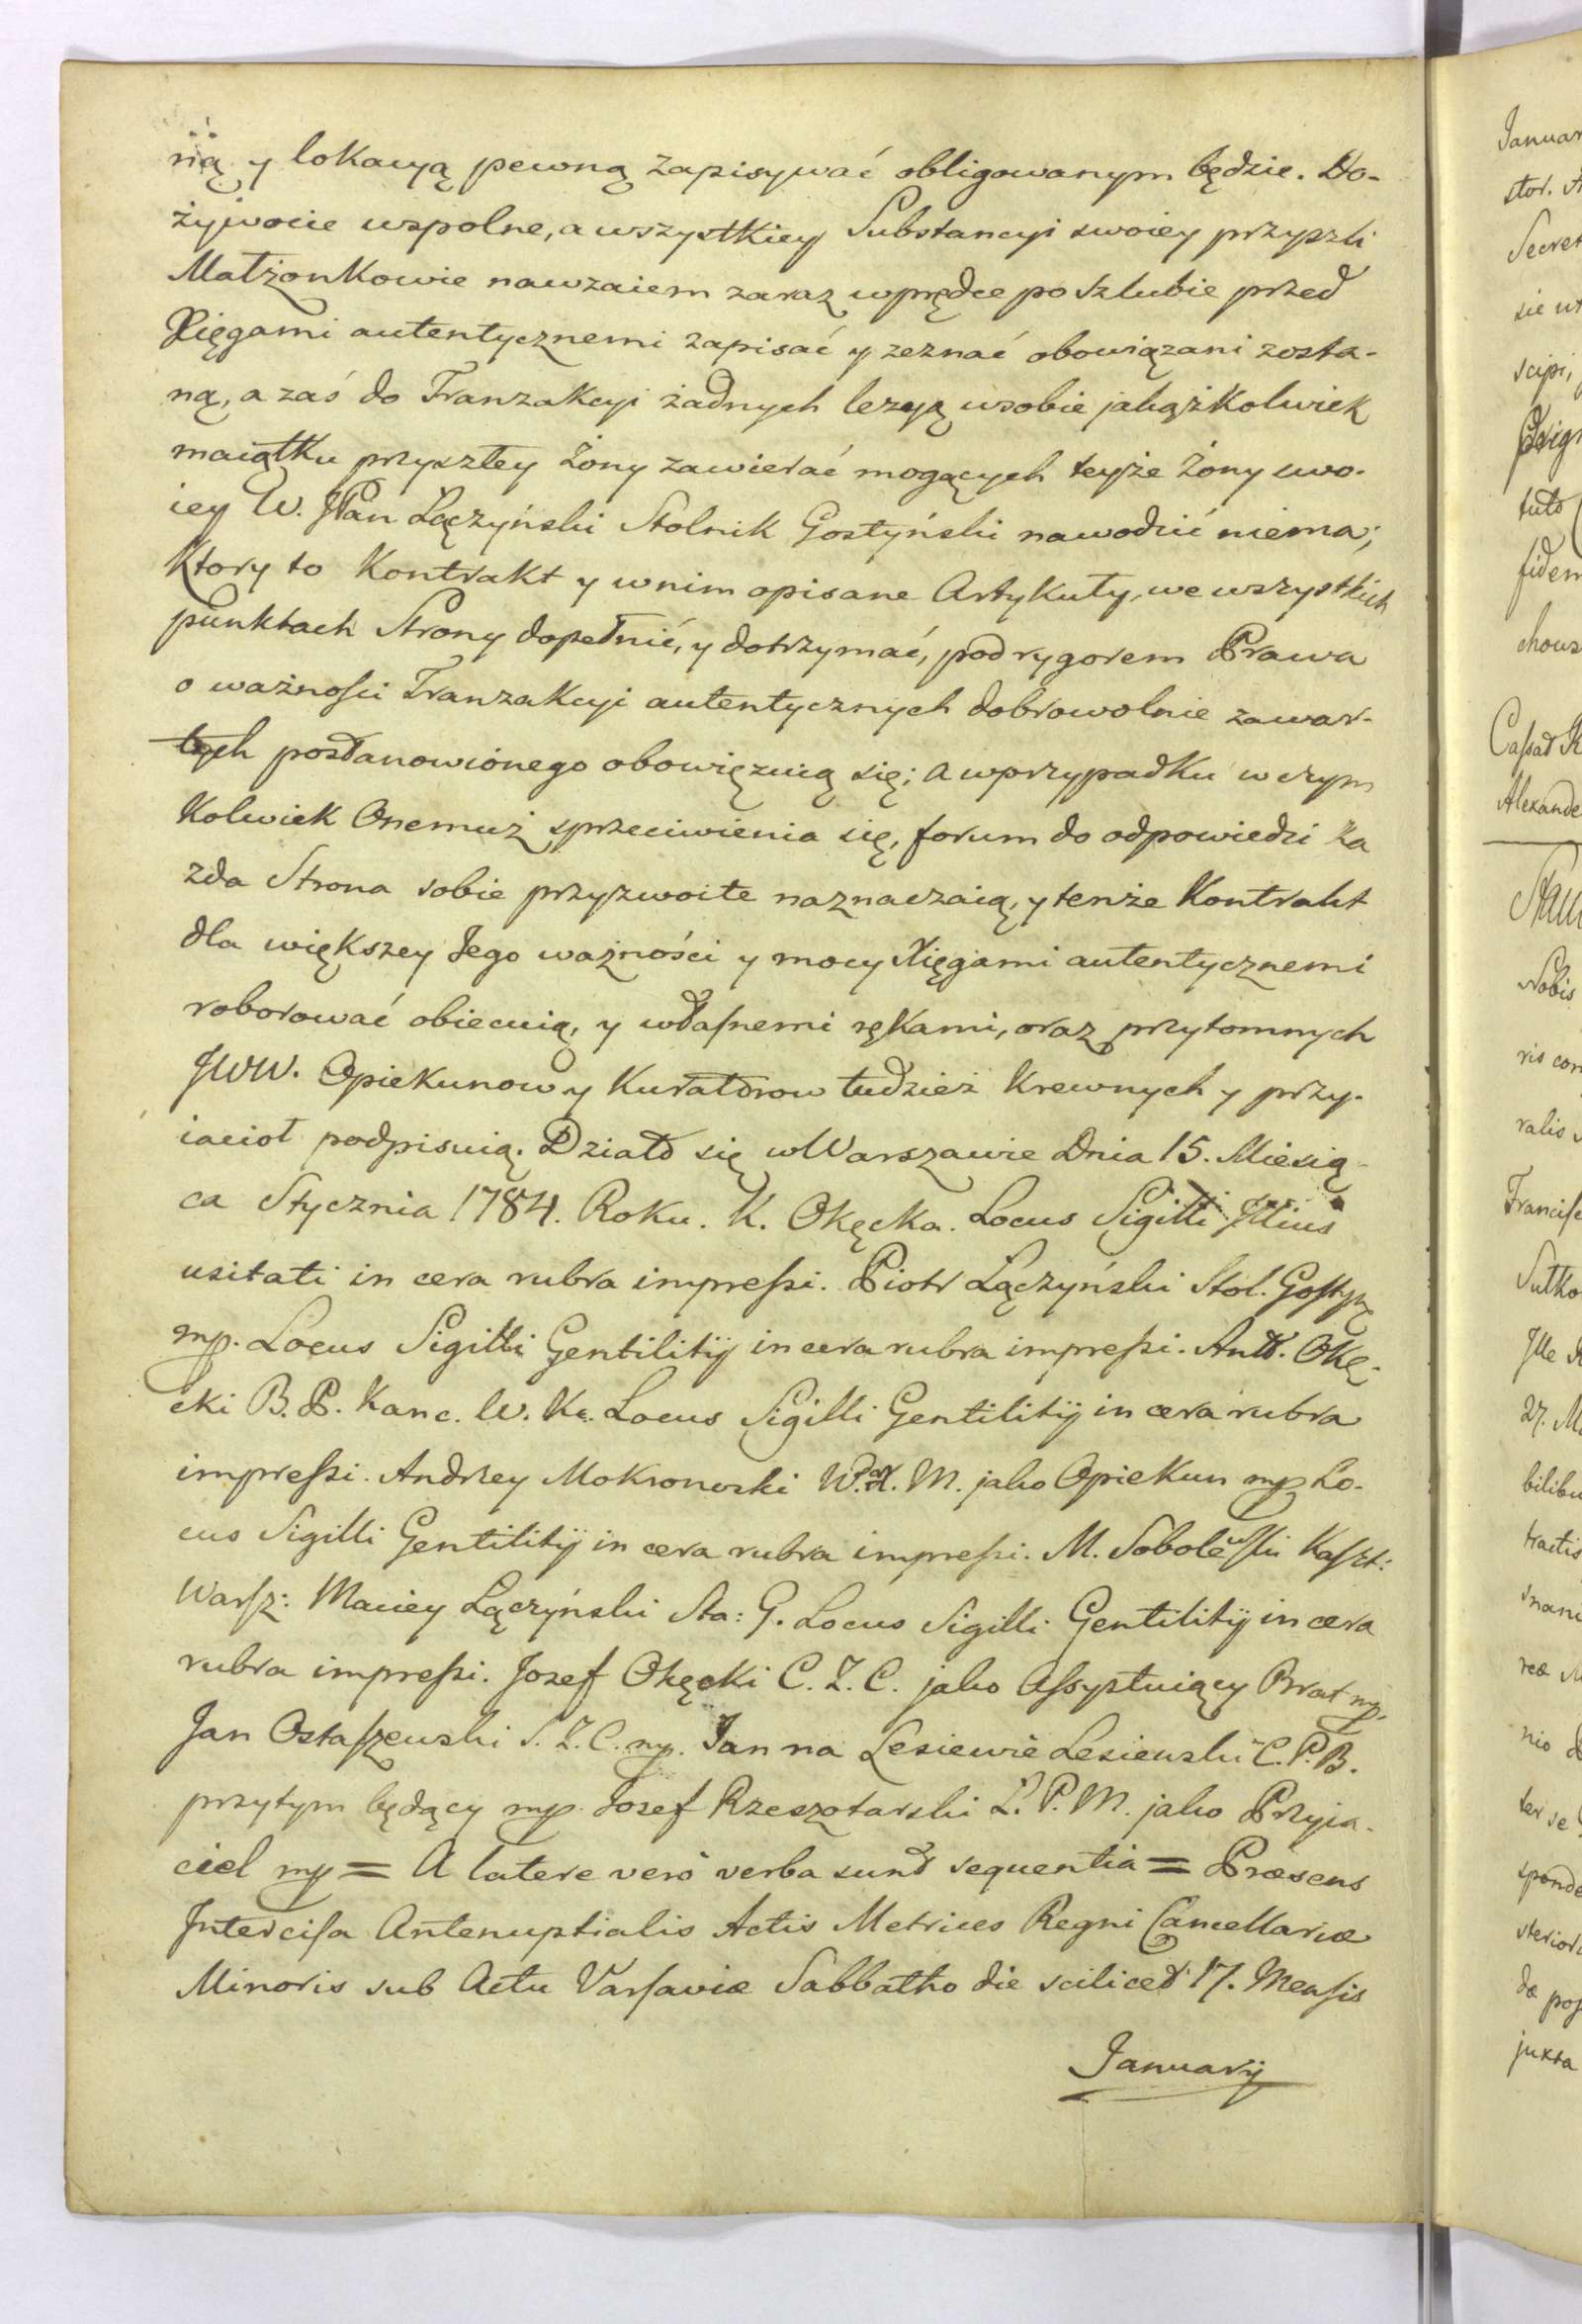 nią y lokacyą pewną zapisywać obligowanym będzie. Do-
żywocie wspolne, a wszystkiey Substancyi swoiey przyszli
Małżonkowie nawzaiem zaraz wprędce po szlubie przed
Xięgami autentycznemi zapisać y zeznać obowiązani zosta-
ną, a zaś do Tranzakcyi żadnych lezyą wsobie jakążkolwiek
maiątku przyszłey Żony zawierać mogących teyże Żony swo-
iey W. JPan Łączyński Stolnik Gostyński nawodzić niema;
Ktory to Kontrakt y wnim opisane Artykuły, we wszystkich
punktach Strony dopełnić, y dotrzymać, pod rygorem Prawa
o ważnoſci Tranzakcyi autentycznych dobrowolnie zawar-
tych postanowionego obowięzuią się; a wprzypadku w czym
Kolwiek Onemuż sprzeciwienia się, forum do odpowiedzi Ka
żda Strona sobie przyzwoite naznaczaią, y tenże Kontrakt
dla większey Jego ważności y mocy Xięgami autentycznemi
roborować obiecuią, y właſnemi rękami, oraz przytomnych
JWW. Opiekunow y Kuratorow tudzież Krewnych y przy-
iacioł podpisuią. Działo się w Warszawie Dnia 15. Miesią-
ca Stycznia 1784. Roku. K. Okęcka. Locus Sigilli Illius
usitati in cera rubra impreſsi. Piotr Łączyński Stol. Goſtyń
mp. Locus Sigilli Gentilitij in cera rubra impreſsi. Ant. Okę-
cki B. P. Kanc. W. Ko. Locus Sigilli Gentilitij in cera rubra
impreſsi. Andrzey Mokronowski M. jako Opiekun mp Lo-
cus Sigilli Gentilitij in cera rubra impreſsi. M. Sobolewſki Kaſzt:
Warſz: Maciey Łączyński Sta: G. Locus Sigilli Gentilitij in cera
rubra impreſsi. Jozef Okęcki C. Z. C. jako Aſsystuiący Brat mp.
Jan Ostaſzewski S. Z. C. mp. Jan na Lesiewie Lesiewski C. P. B.
przytym będący mp. Jozef Rzeszotarski Ł. P. M. jako Przyia-
ciel mp = A latere verò verba sunt sequentia = Præsens
Interciſa Antenuptialis Actis Metrices Regni Cancellariæ
Minoris sub Actu Varſaviæ Sabbatho die scilicet 17. Menſis
Januarij
Januar
stor. A
Secret
scipi,
tuto
fidem
Alexande
Nobis
ris con
ralis
Franciſc
Sulko
27. M
bilibu
ter se
sponde
sterior
juxta